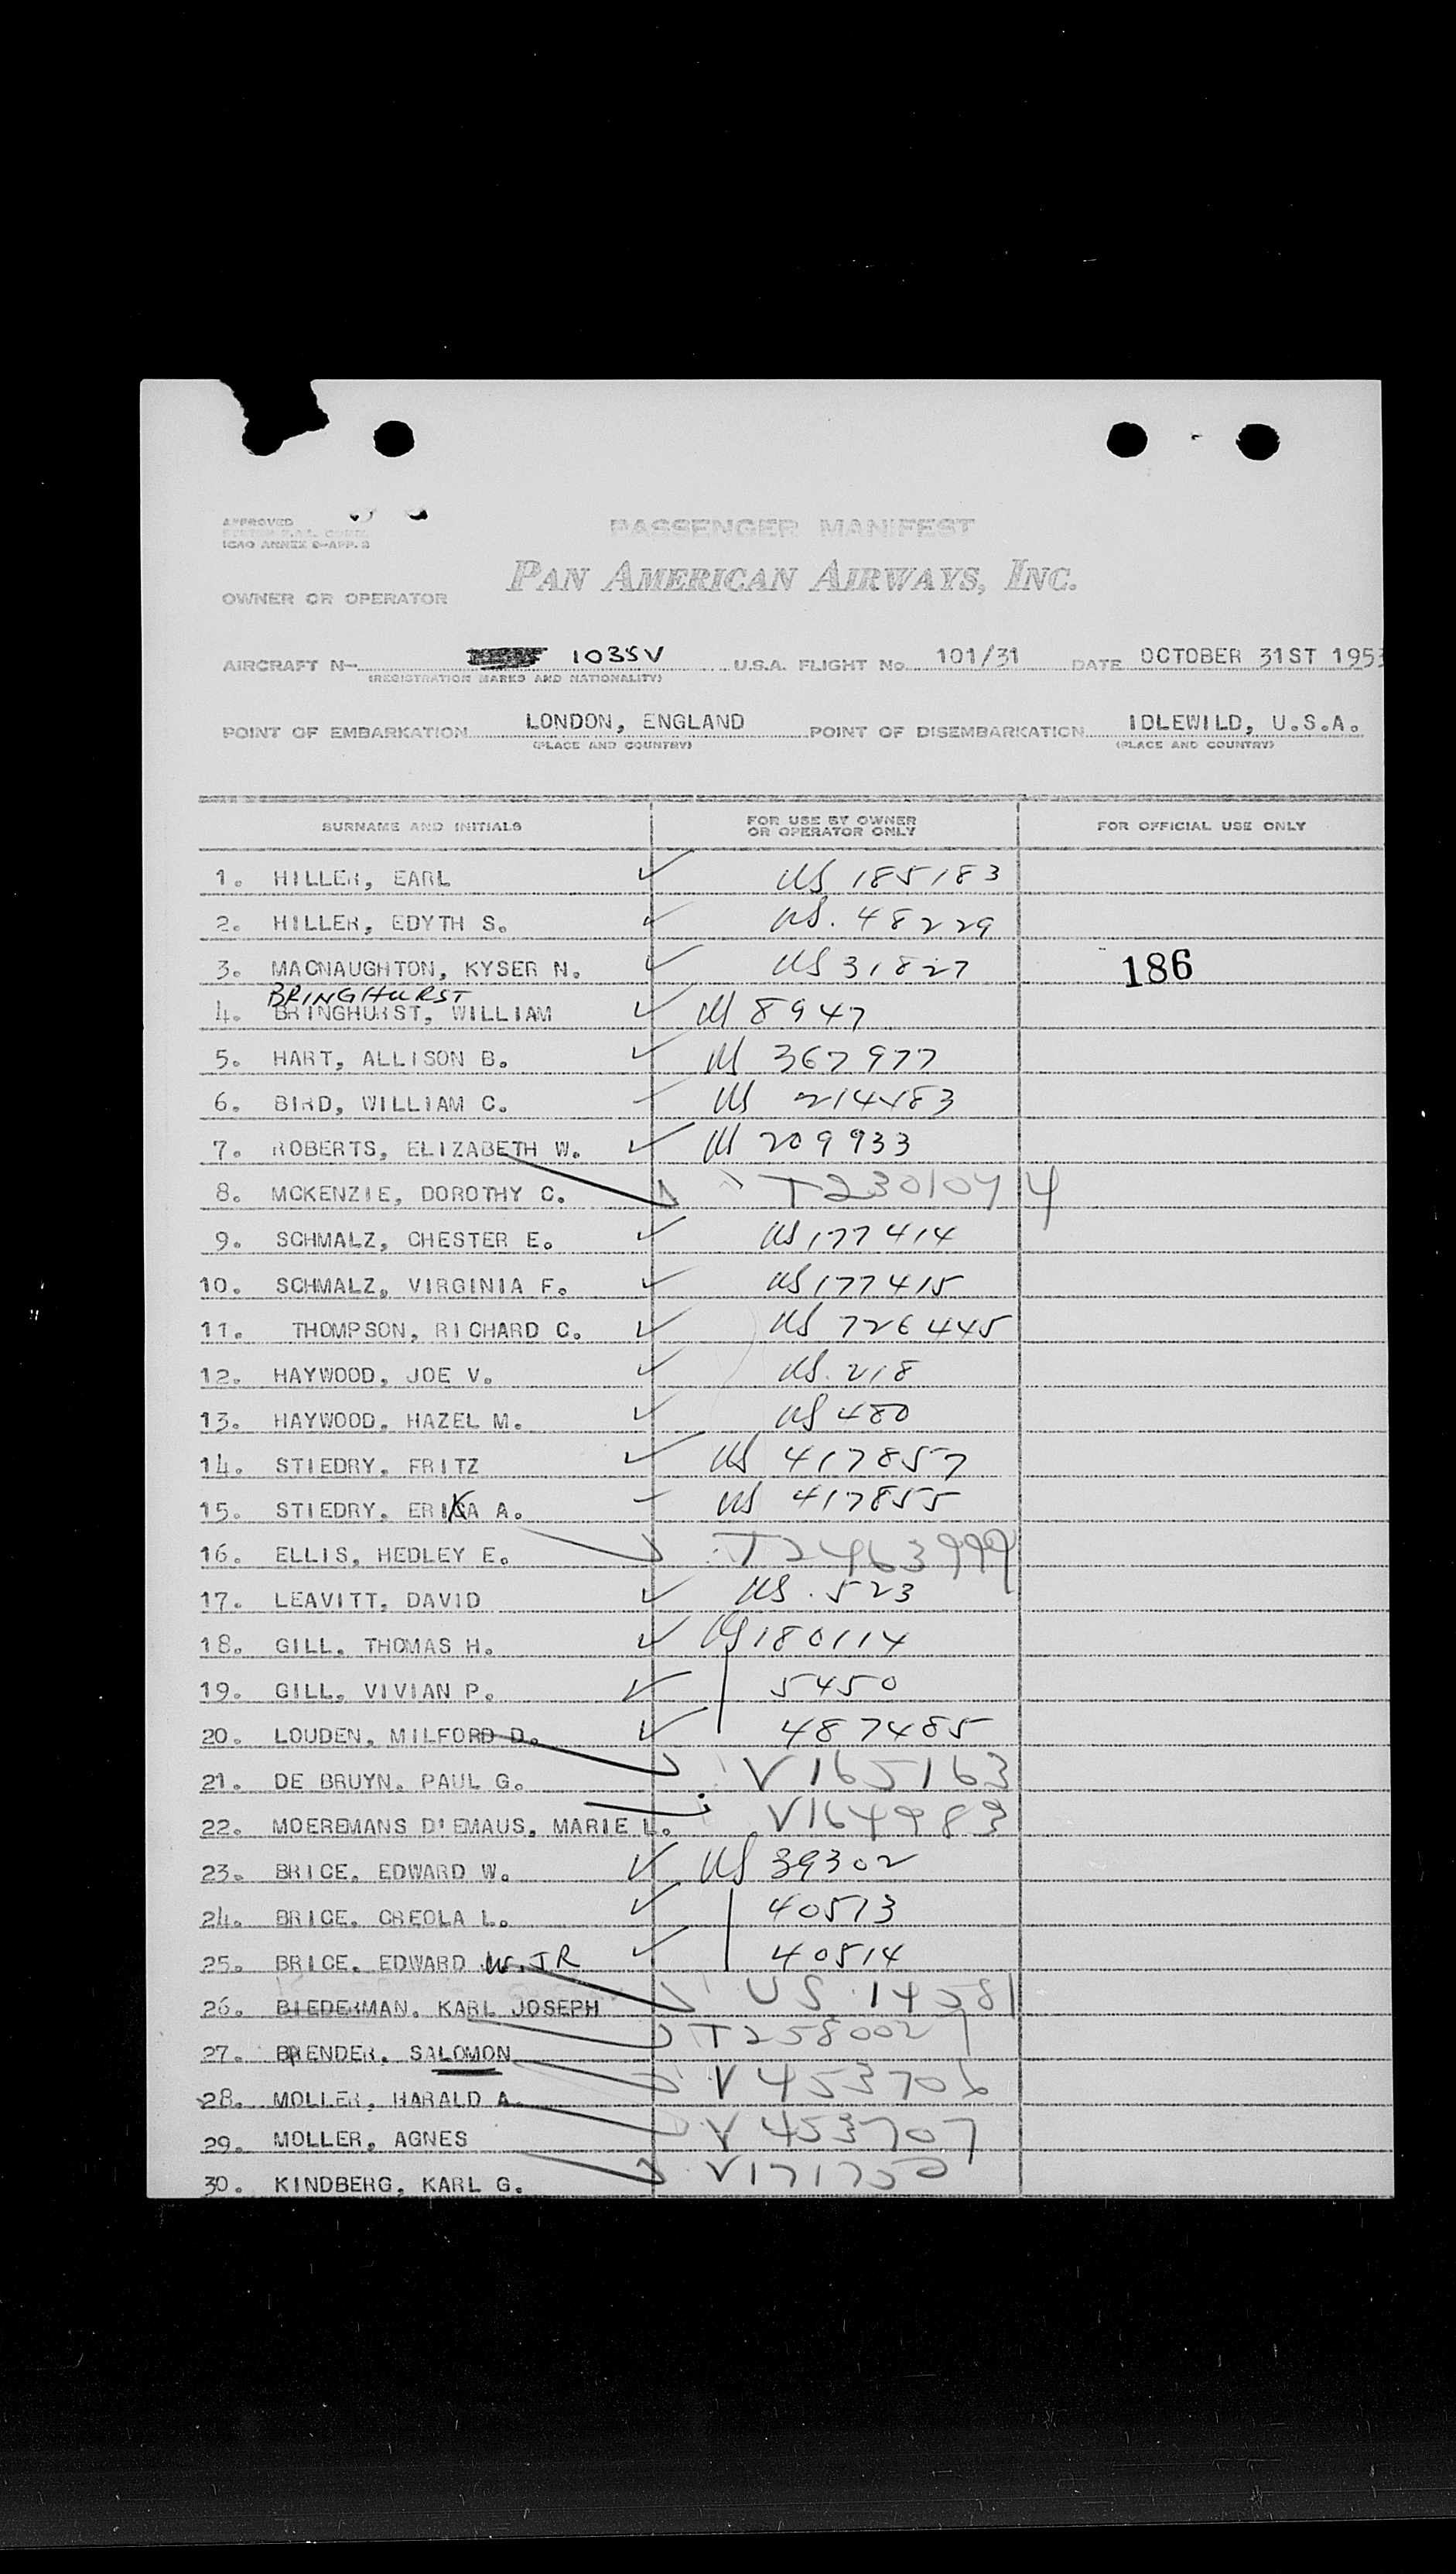 APPROVED
ICAO ANNEX 9-APP. 3
PASSENGER MANIFEST
PAN AMERICAN AIRWAYS, INC.
OWNER OR OPERATOR
AIRCRAFT N- 1035V U.S.A. FLIGHT No. 101/31 DATE OCTOBER 31ST 1953
(REGISTRATION MARKS AND NATIONALITY)
POINT OF EMBARKATION LONDON, ENGLAND POINT OF DISEMBARKATION IDLEWILD, U.S.A.
(PLACE AND COUNTRY) (PLACE AND COUNTRY)
SURNAME AND INITIALS FOR USE BY OWNER OR OPERATOR ONLY FOR OFFICIAL USE ONLY
1. HILLER, EARL ✓ US 185183
2. HILLER, EDYTH S. ✓ US. 48229
3. MACNAUGHTON, KYSER N. ✓ US 31827 186
BRINGHURST
4. BRINGHURST, WILLIAM ✓ US 8947
5. HART, ALLISON B. ✓ US 367977
6. BIRD, WILLIAM C. US
7. ROBERTS, ELIZABETH W. ✓ US 209933
8. MCKENZIE, DOROTHY C. T2301044
9. SCHMALZ, CHESTER E. ✓ US 177414
10. SCHMALZ, VIRGINIA F. ✓ US 177415
11. THOMPSON, RICHARD C. ✓ US 726445
12. HAYWOOD, JOE V. ✓ US. 218
13. HAYWOOD, HAZEL M. ✓ US 480
14. STIEDRY, FRITZ ✓ US 417857
15. STIEDRY, ERIKA A. US 417855
16. ELLIS, HEDLEY E. T2463999
17. LEAVITT, DAVID ✓ US. 523
18. GILL, THOMAS H. ✓ US 180114
19. GILL, VIVIAN P. ✓ 5450
20. LOUDEN, MILFORD D. ✓ 487485
21. DE BRUYN, PAUL G. V165163
22. MOEREMANS D'EMAUS, MARIE L. V164983
23. BRICE, EDWARD W. ✓ US 39302
24. BRICE, CREOLA L. ✓ 40513
25. BRICE, EDWARD W. JR ✓ 40514
26. BIEDERMAN, KARL JOSEPH US 14581
27. BRENDER, SALOMON T258002
28. MOLLER, HARALD A. V 453706
29. MOLLER, AGNES V 453707
30. KINDBERG, KARL G. V171750